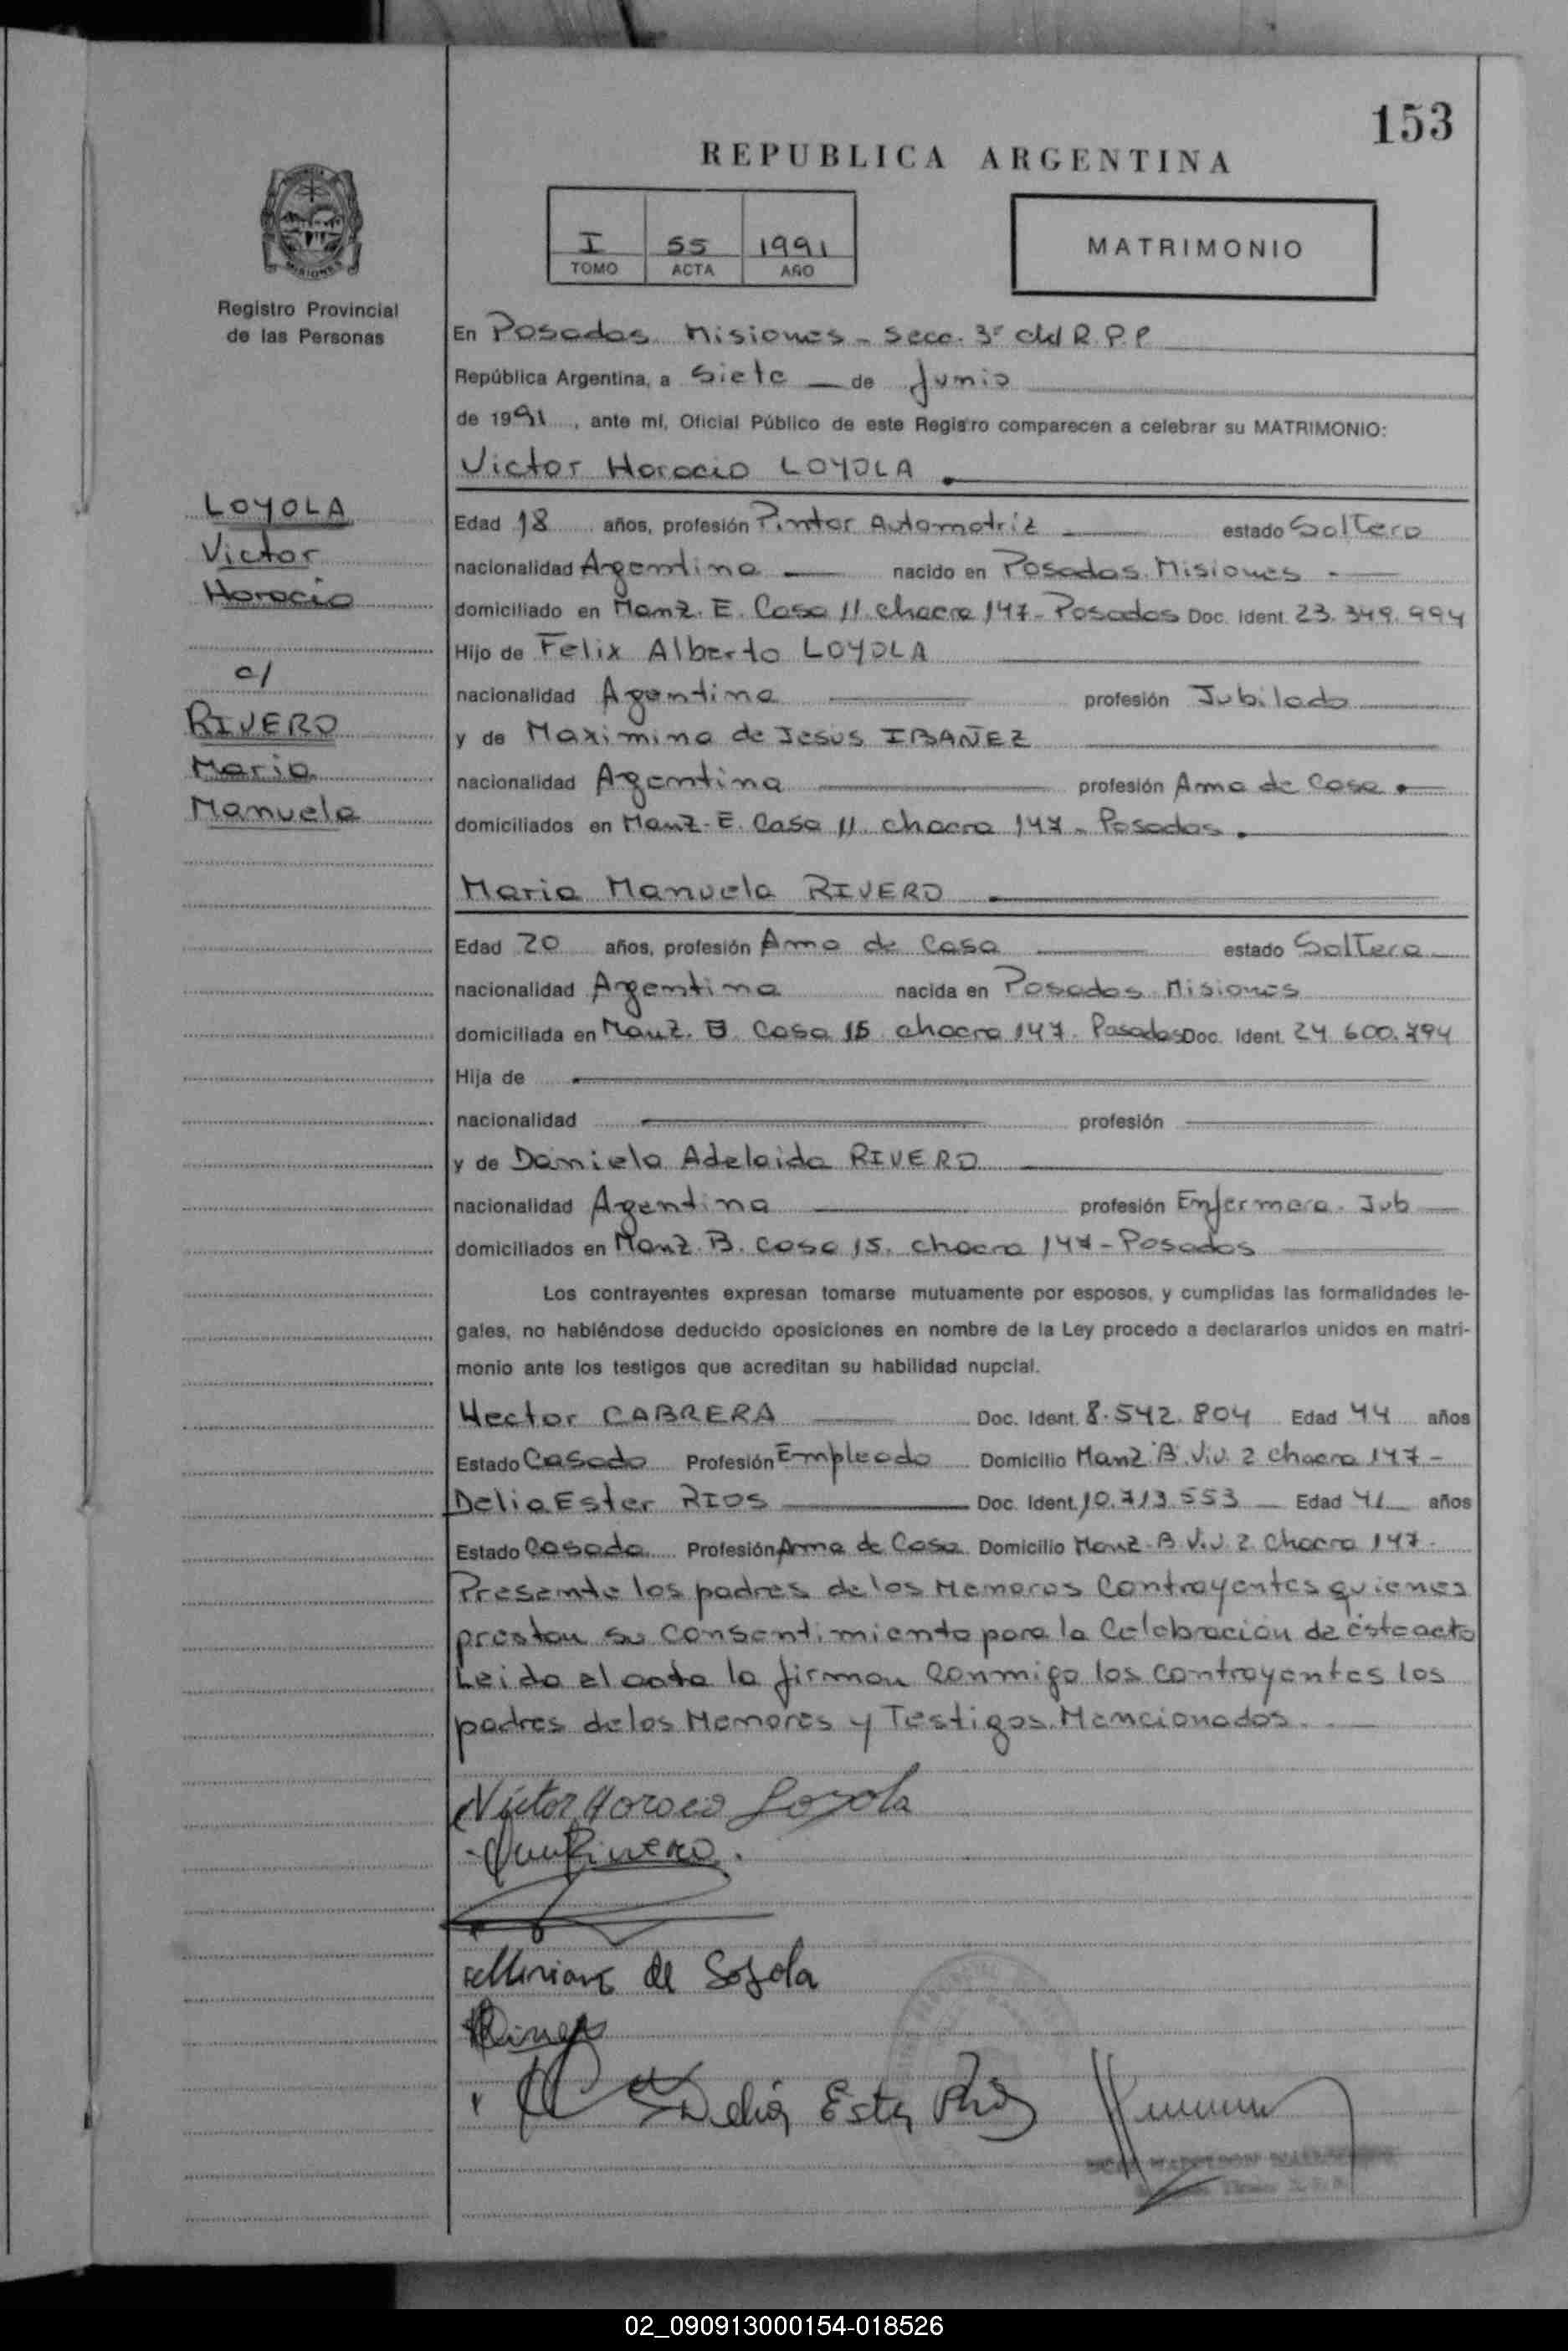 153
REPUBLICA ARGENTINA
I 55 1991
TOMO ACTA AÑO
MATRIMONIO
MISIONES
Registro Provincial
de las Personas
LOYOLA
Victor
Horacio
c/
RIVERO
Maria
Manuela
En Posadas Misiones - Secc. 3ª del R.P.P.
República Argentina, a Siete de Junio
de 1991, ante mí, Oficial Público de este Registro comparecen a celebrar su MATRIMONIO:
Victor Horacio LOYOLA
Edad 18 años, profesión Pintor Automotriz estado Soltero
nacionalidad Argentina nacido en Posadas Misiones -
domiciliado en Manz. E. Casa 11. chacra 147 - Posadas Doc. Ident. 23.349.994
Hijo de Felix Alberto LOYOLA
nacionalidad Agentina profesión Jubilado
y de Maximina de Jesus IBAÑEZ
nacionalidad Agentina profesión Ama de Casa.
domiciliados en Manz. E. Casa 11. chacra 147 - Posadas.
Maria Manuela RIVERO
Edad 20 años, profesión Ama de Casa estado Soltera
nacionalidad Argentina nacida en Posadas Misiones
domiciliada en Manz. B Casa 15 chacra 147. Posadas Doc. Ident. 24.600.794
Hija de
nacionalidad profesión
y de Daniela Adelaida RIVERO
nacionalidad Agentina profesión Enfermera. Jub
domiciliados en Manz. B. casa 15. chacra 147 - Posadas
Los contrayentes expresan tomarse mutuamente por esposos, y cumplidas las formalidades le-
gales, no habiéndose deducido oposiciones en nombre de la Ley procedo a declararlos unidos en matri-
monio ante los testigos que acreditan su habilidad nupcial.
Hector CABRERA Doc. Ident. 8.542.804 Edad 44 años
Estado Casado Profesión Empleado Domicilio Manz. B. Viv. 2 Chacra 147 -
Delia Ester RIOS Doc. Ident. 10.713.553 Edad 41 años
Estado Casada Profesión Ama de Casa Domicilio Manz. B. Viv. 2. Chacra 147.
Presente los padres de los Menores Contrayentes quienes
prestan su consentimiento para la Celebracion de éste acto
Leida el acta la firman Conmigo los contrayentes los
padres de los Menores y Testigos Mencionados.
Victor Horacio Loyola
Rivero
de Loyola
Delia Ester Rios
02_090913000154-018526